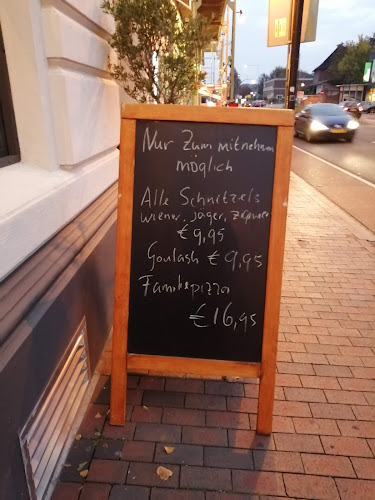 Nur Zum mitnehmen
möglich
Alle Schnitzels
wiener, jäger,
€ 9,95
Goulash € 9,95
Familiepizza
€ 16,95